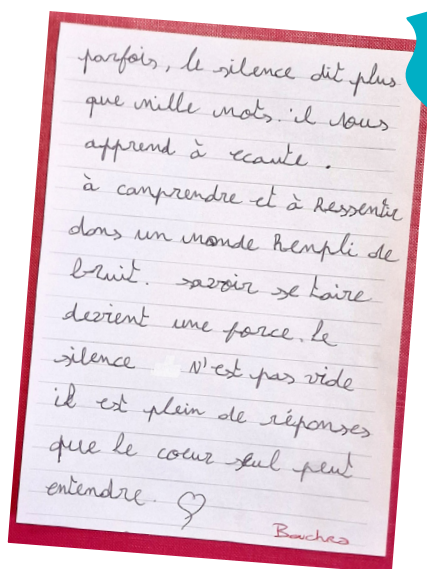 parfois, le silence dit plus
que mille mots. il nous
apprend à ecoute.
à comprendre et à Ressentir
dans un monde Rempli de
bruit. savoir se taire
devient une force. le
silence N'est pas vide
il est plein de réponses
que le coeur seul peut
entendre.
Bouchra